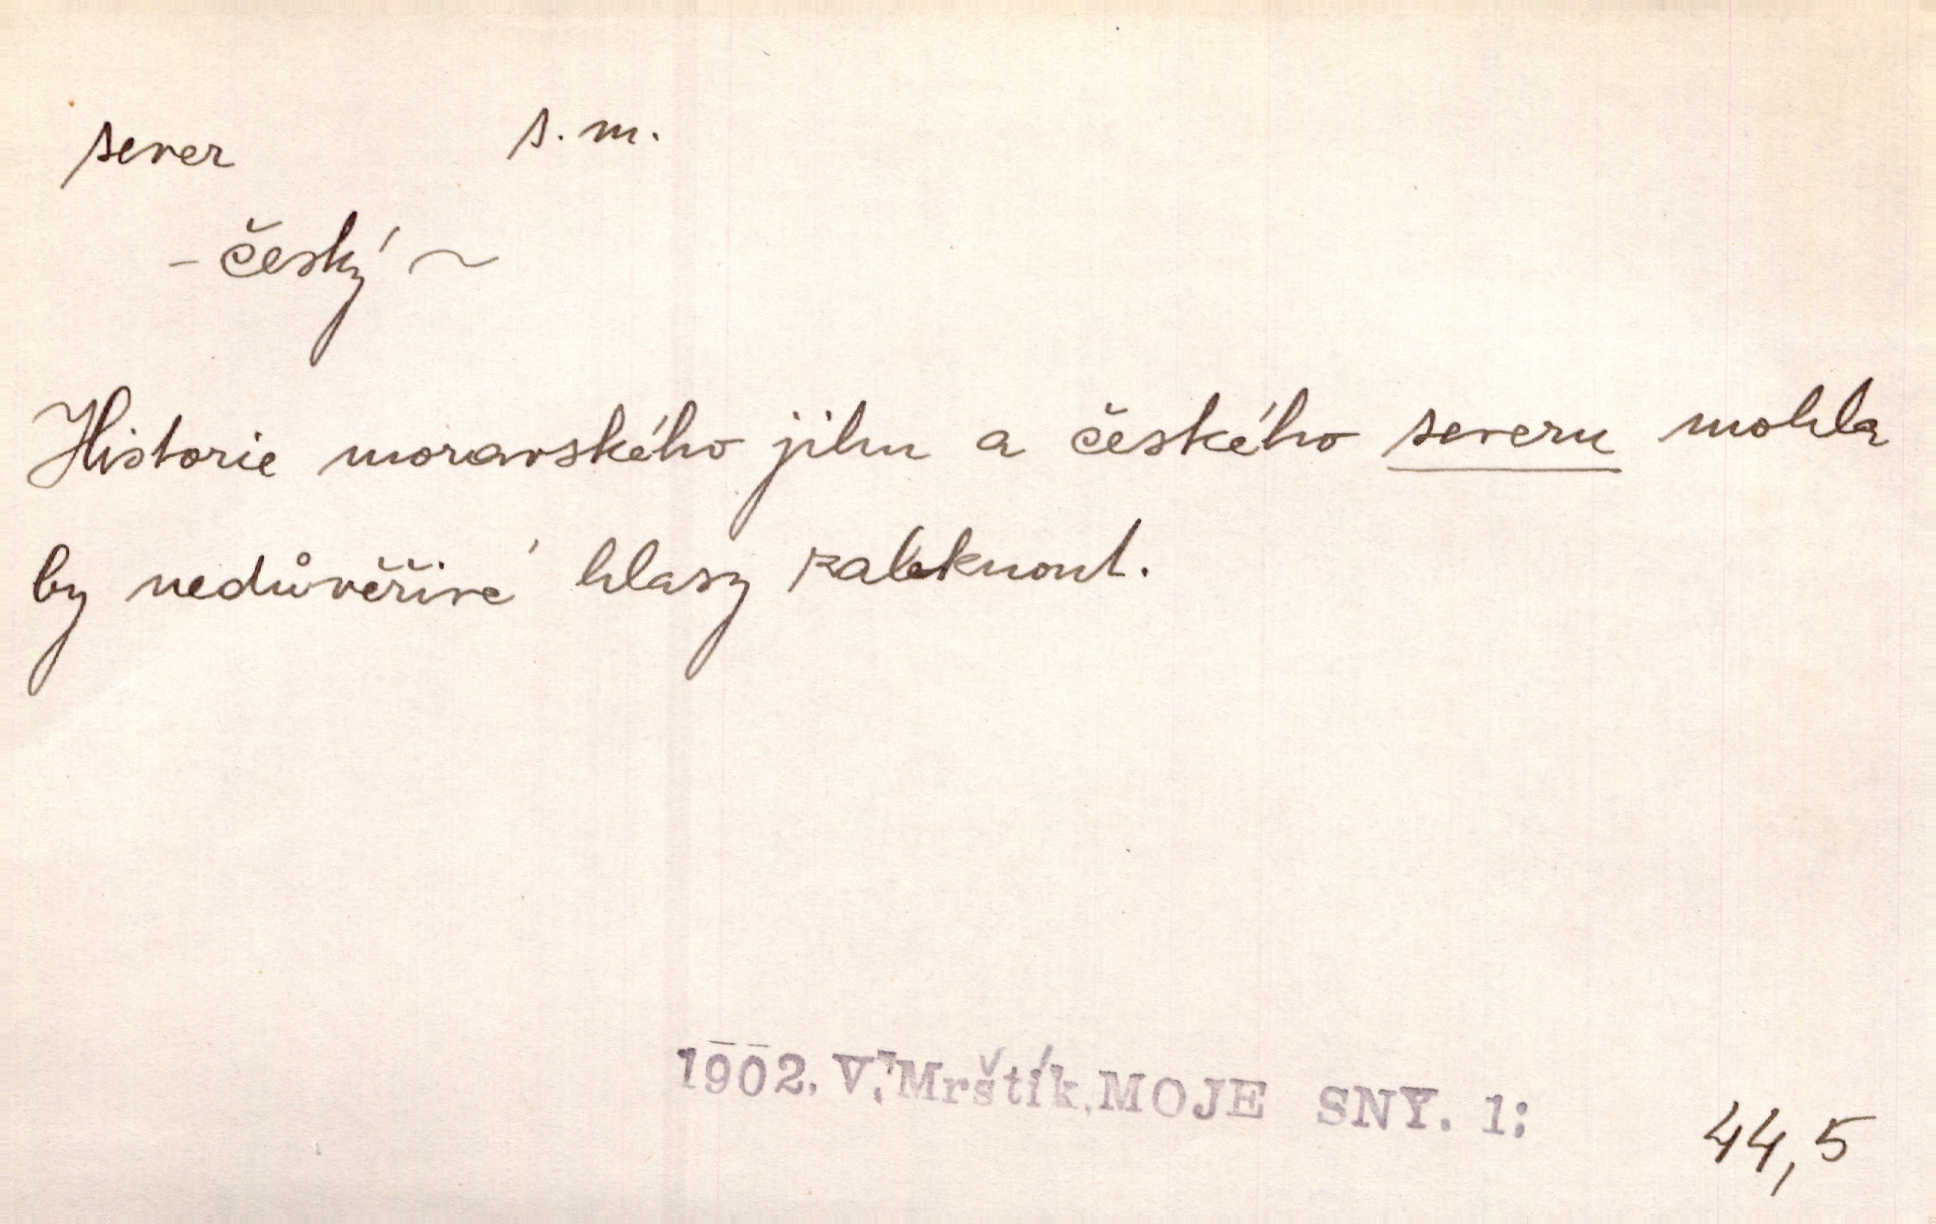 sever s. m.
- český ~
Historie moravského jihu a českého severu mohla
by nedůvěřivé hlasy zaleknout.
1902. V. Mrštík, MOJE SNY. 1: 44,5